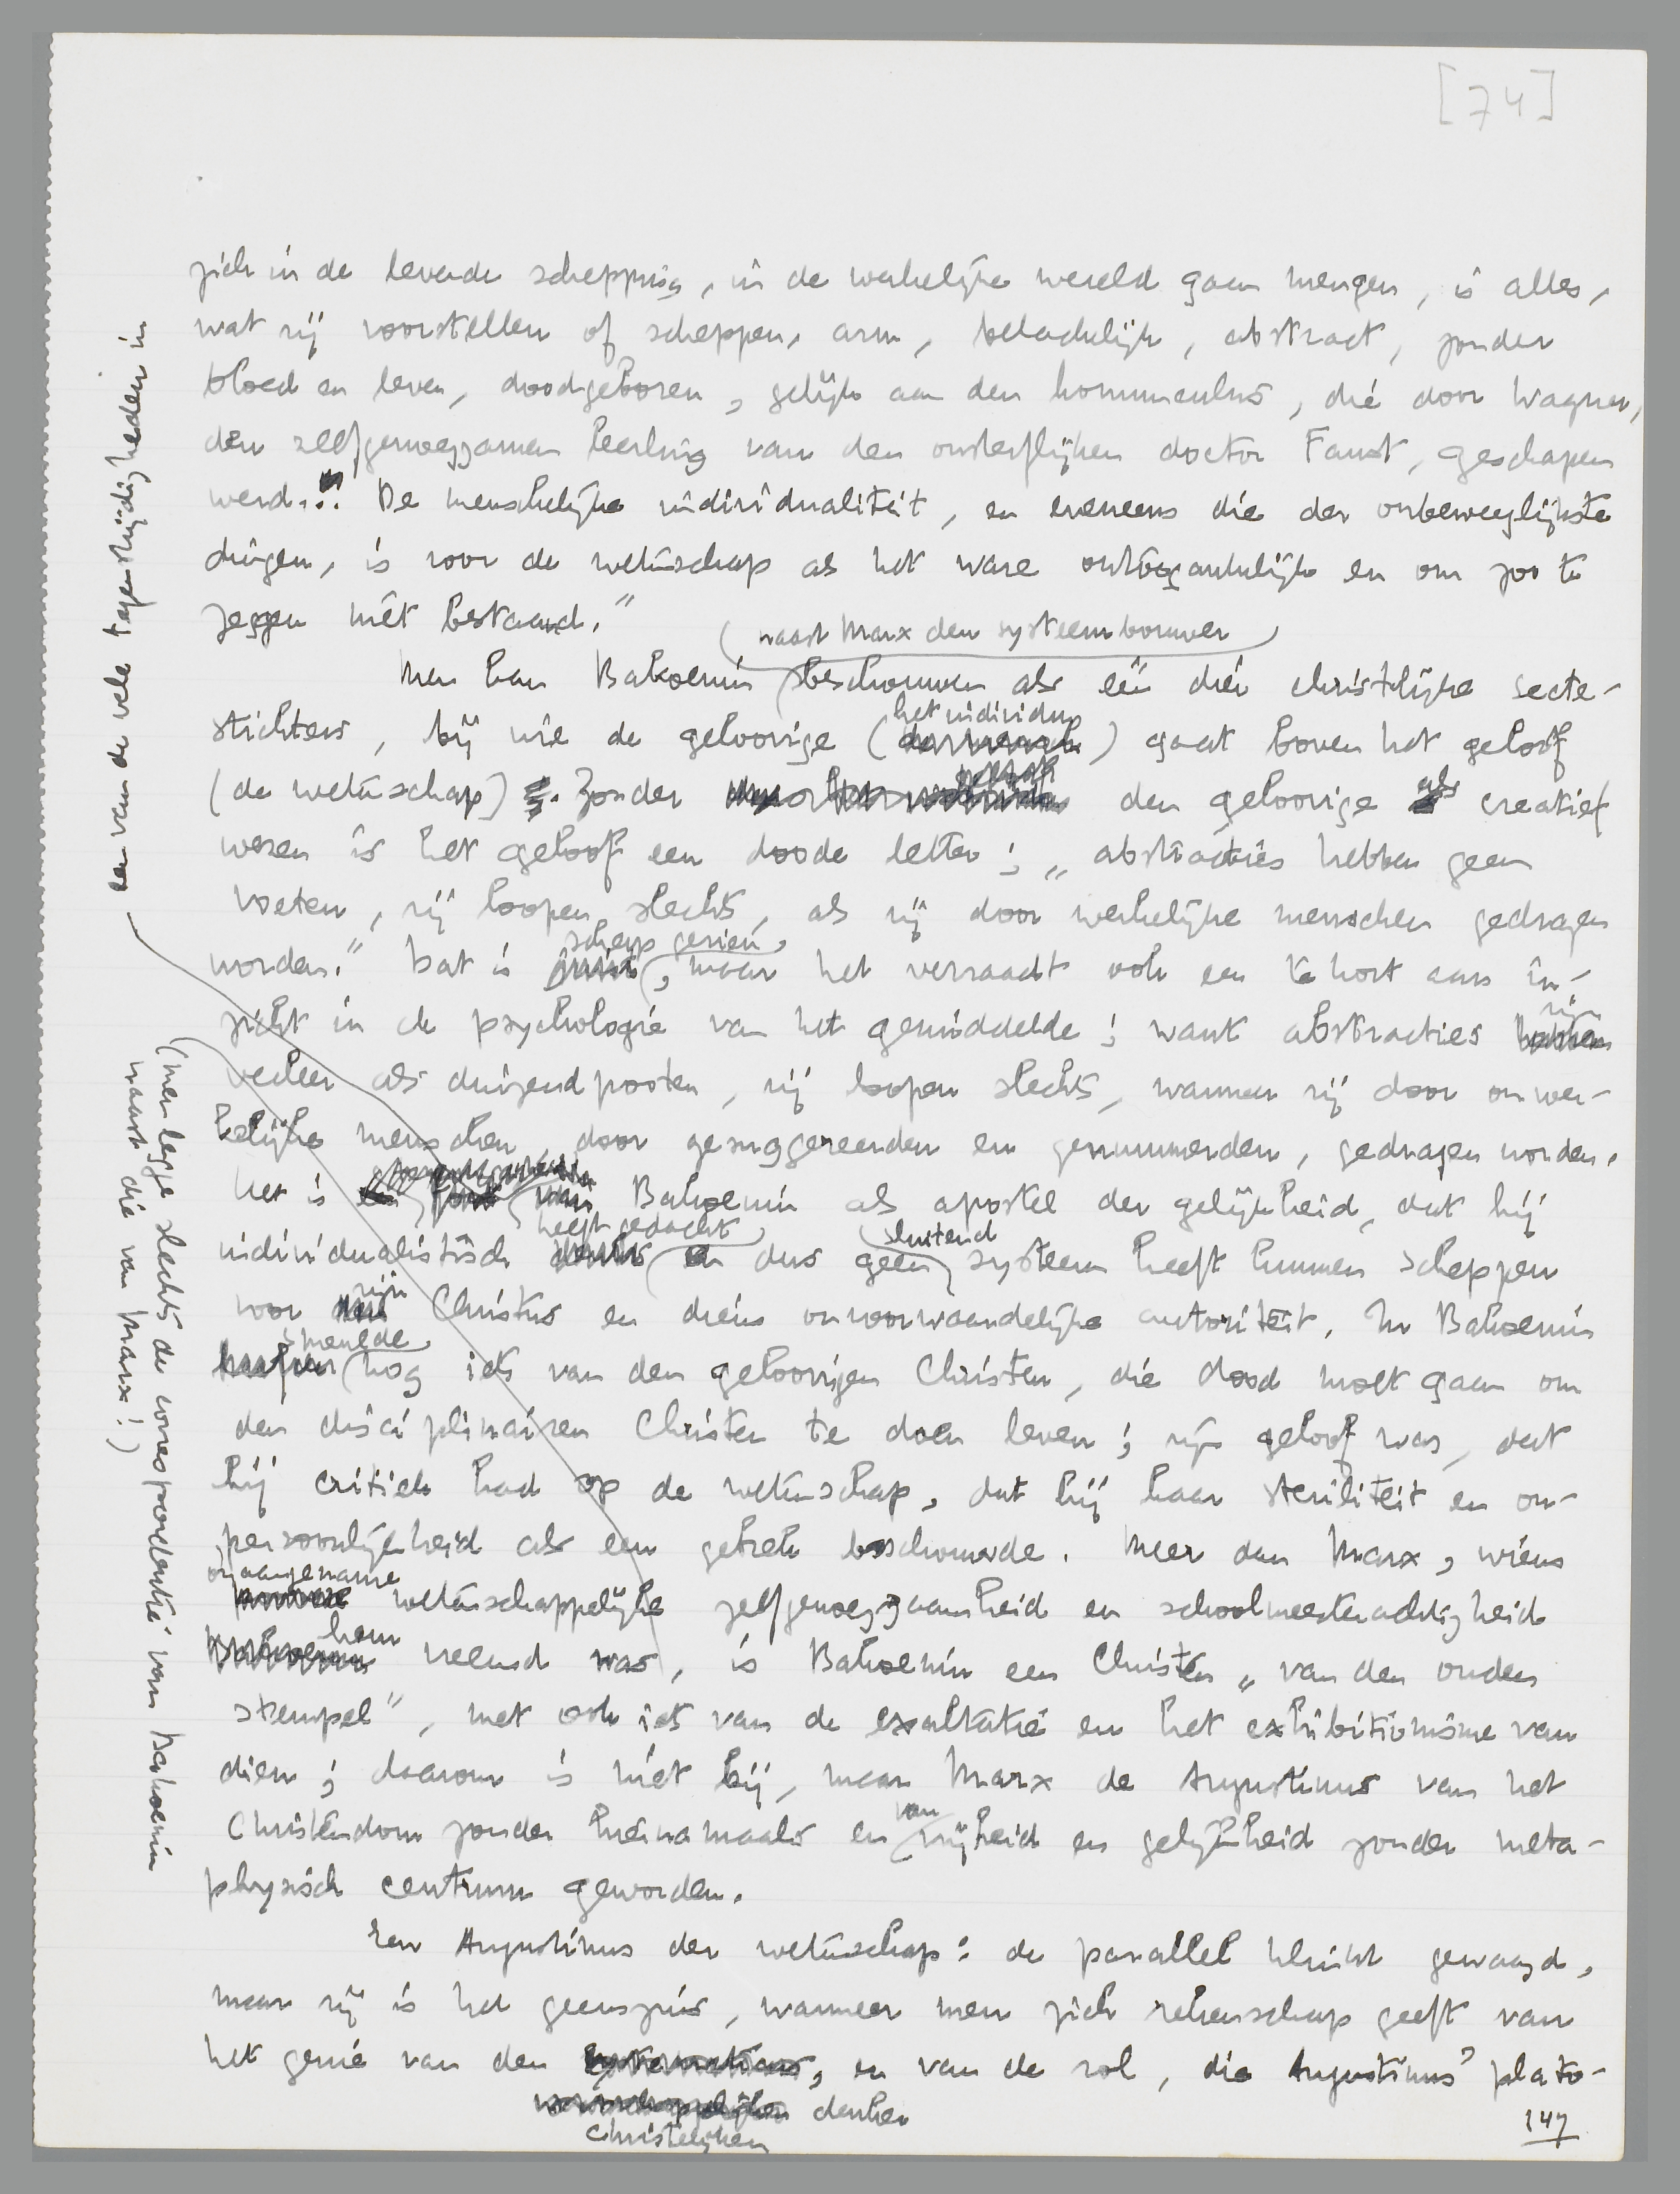 [74]
zich in de levende schepping, in de werkelijke wereld gaan mengen, is alles,
wat zij voorstellen of scheppen, arm, belachelijk, abstract, zonder
bloed en leven, doodgeboren, gelijk aan den homunculus, die door Wagner,
den zelfgenoegzamen leerling van den onsterflijken doctor Faust, geschapen
werd... De menschelijke individualiteit, en eveneens die der onbeweeglijkste
dingen, is voor de wetenschap als het ware ontoegankelijk en om zoo te
zeggen niet bestaand."
(naast Marx den systeembouwer)
Men kan Bakoenin beschouwen als één dier christelijke secte-
het individu
stichters, bij wie de geloovige (der mensch) gaat boven het geloof
(de wetenschap). Zonder den geloovige als creatief
wezen is het geloof een doode letter; „abstracties hebben geen
voeten, zij loopen slechts, als zij door werkelijke menschen gedragen
scherp gezien,
worden." Dat is juist, maar het verraadt ook een te kort aan in-
zijn
zicht in de psychologie van het gemiddelde; want abstracties hebben
veeleer als duizendpooten, zij loopen slechts, wanneer zij door onwer-
kelijke menschen, door gesuggereerden en genummerden, gedragen worden.
Het is een fout van Bakoenin als apostel der gelijkheid, dat hij
heeft gedacht sluitend
individualistisch denkt en dus geen systeem heeft kunnen scheppen
zijn
voor den Christus en diens onvoorwaardelijke autoriteit. In Bakoenin
smeulde
nog iets van den geloovigen Christen, die dood moet gaan om
den disciplinairen Christen te doen leven; zijn geloof was, dat
hij critiek had op de wetenschap, dat hij haar steriliteit en on-
persoonlijkheid als een gebrek beschouwde. Meer dan Marx, wiens
onaangename
wetenschappelijke zelfgenoegzaamheid en schoolmeesterachtigheid
hem
Bakoenin vreemd was, is Bakoenin een Christen „van den ouden
stempel", met ook iets van de exaltatie en het exhibitionisme van
dien; daarom is niet hij, maar Marx de Augustinus van het
van
Christendom zonder hiernamaals en vrijheid en gelijkheid zonder meta-
physisch centrum geworden.
Een Augustinus der wetenschap: de parallel klinkt gewaagd,
maar zij is het geenszins, wanneer men zich rekenschap geeft van
het genie van den systematicus, en van de rol, die Augustinus' plato-
wetenschappelijken denker
Christelijken
147
een van de vele tegenstrijdigheden in
(men legge slechts de correspondentie van Bakoenin
naast die van Marx!)